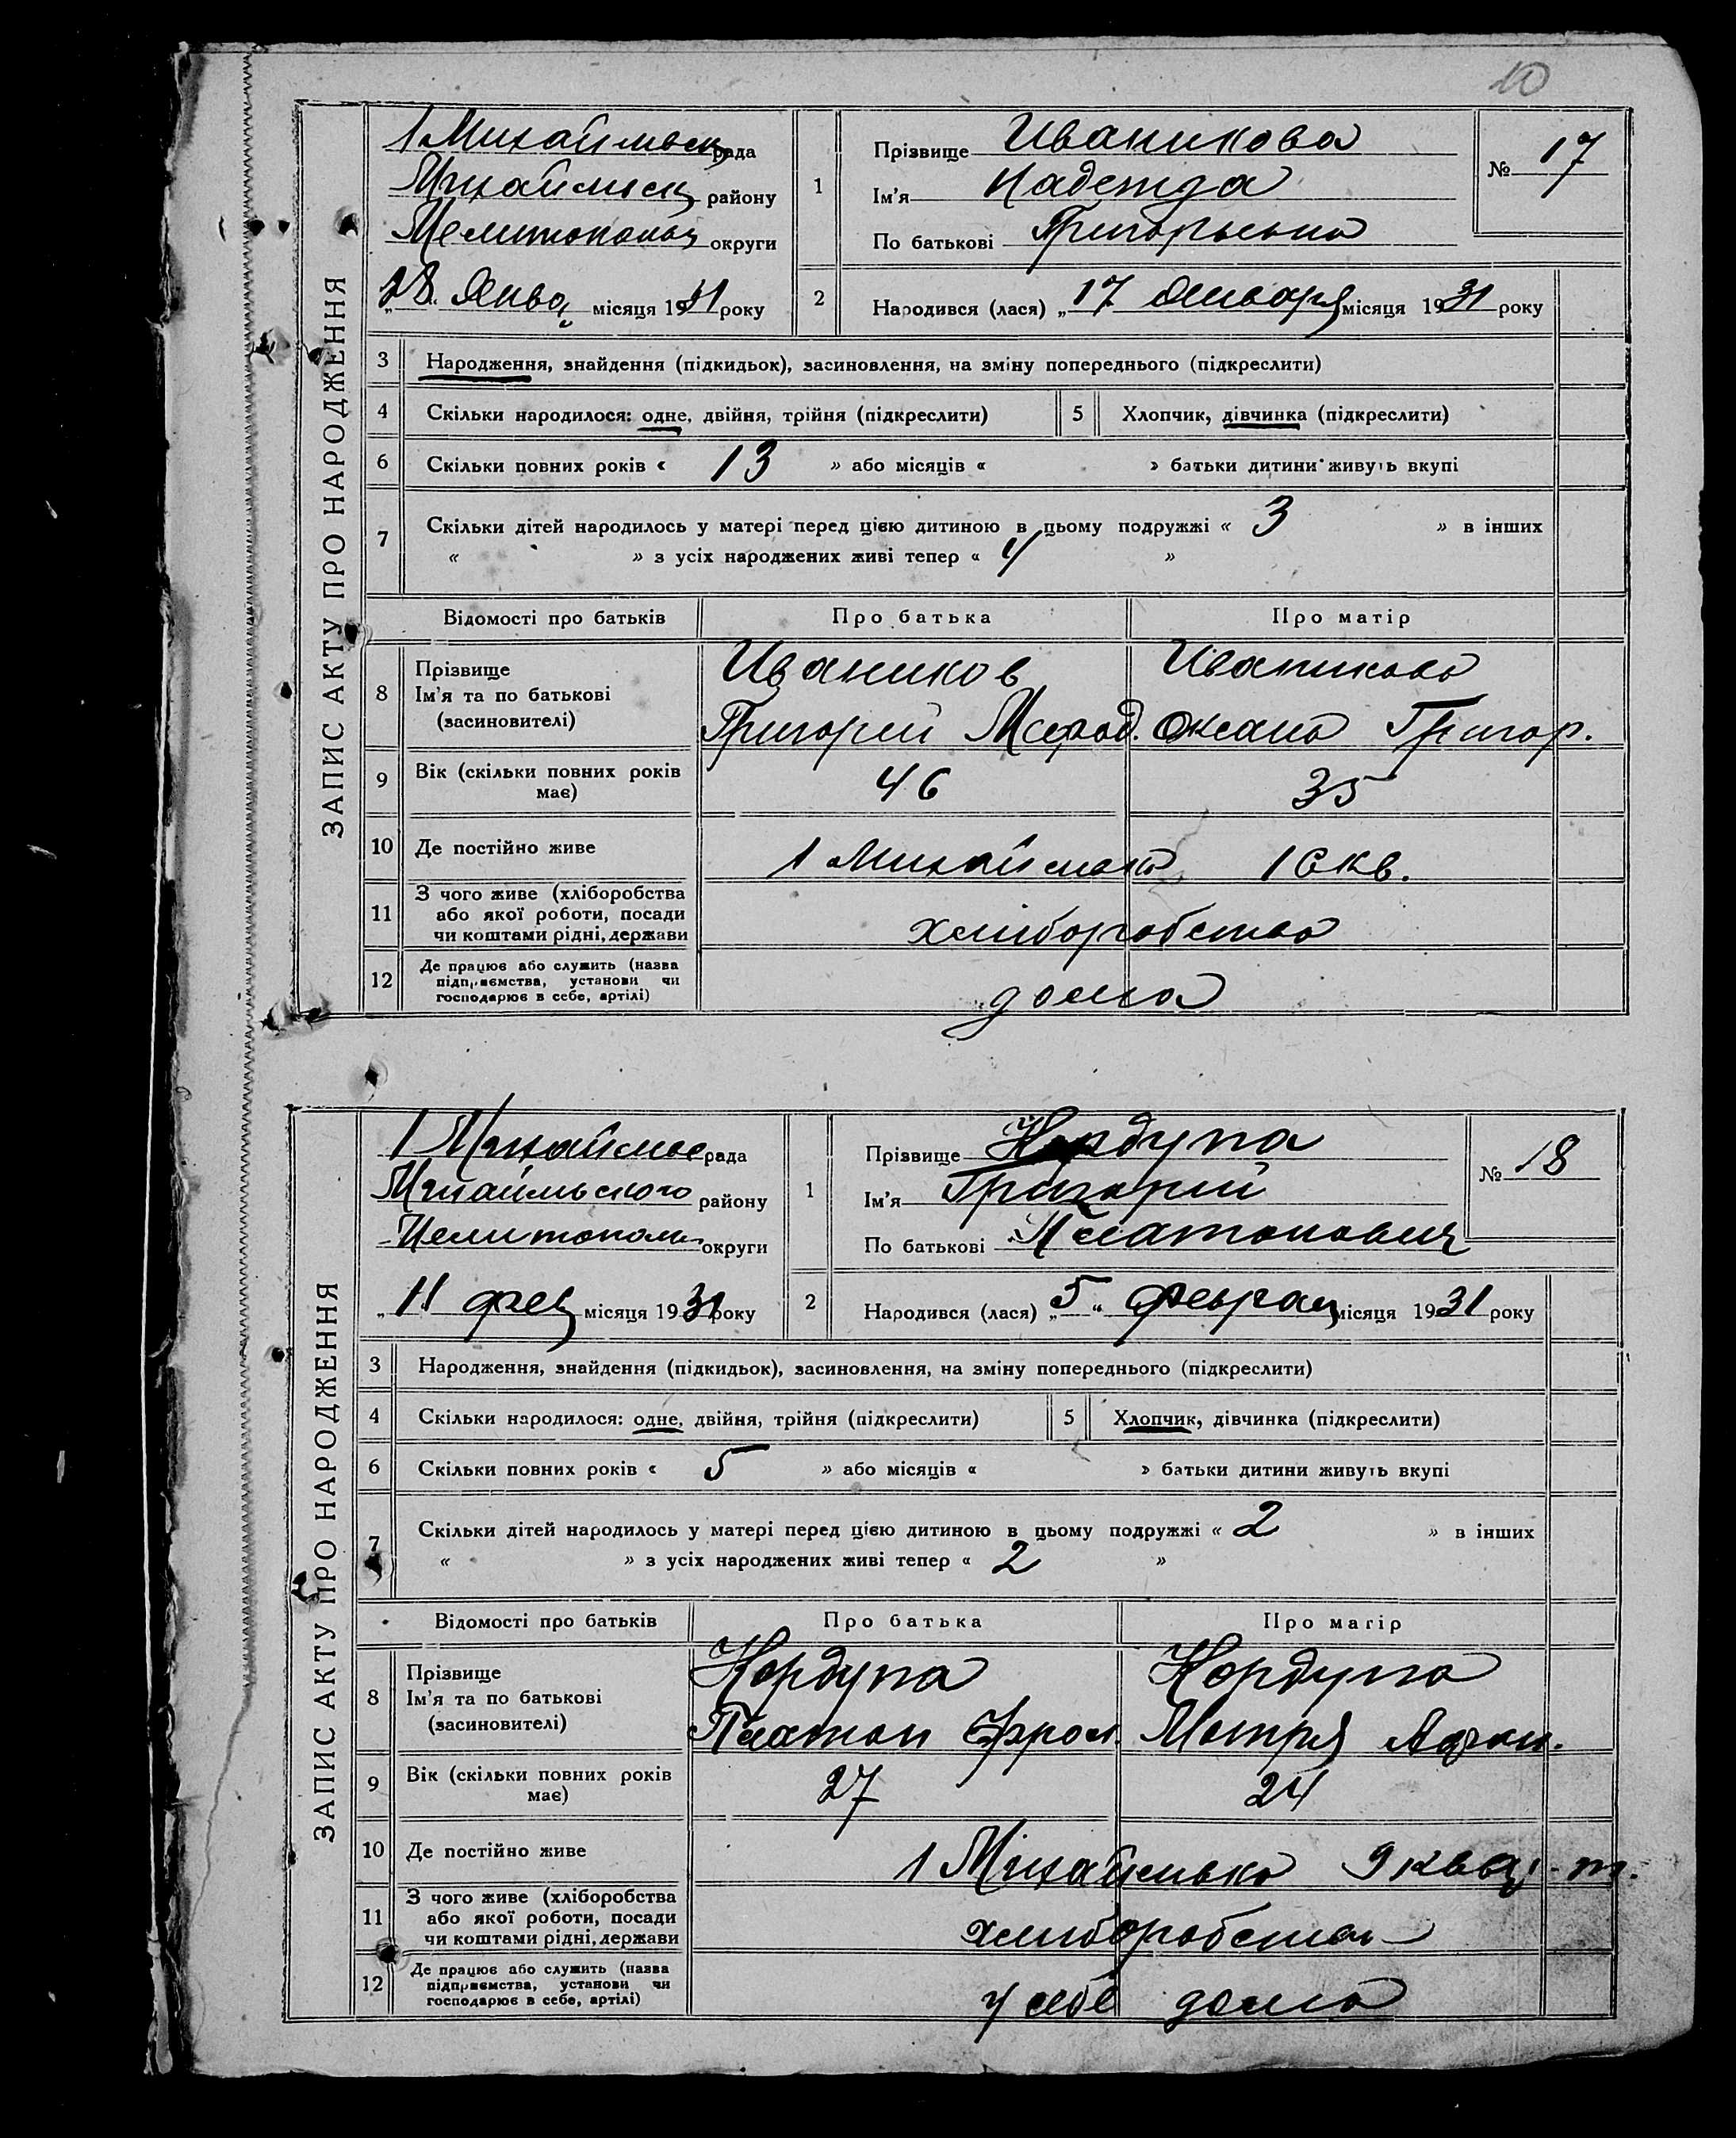 10
ЗАПИС АКТУ ПРО НАРОДЖЕННЯ
1 Михайлівськ рада
Михайлівськ району
Мелитопольщ округи
„28. Янва місяця 1931 року
1
Прізвище Иваникова
Ім'я Надежда
По батькові Григорьевна
№ 17
2
Народився (лася) „17 Января місяця 1931 року
3 Народження, знайдення (підкидьок), засиновлення, на зміну попереднього (підкреслити)
4 Скільки народилося: одне, двійня, трійня (підкреслити)
5 Хлопчик, дівчинка (підкреслити)
6 Скільки повних років « 13 » або місяців « » батьки дитини живуть вкупі
7 Скільки дітей народилось у матері перед цією дитиною в цьому подружжі « 3 » в інших
« » з усіх народжених живі тепер « 4 »
Відомості про батьків Про батька Про матір
8 Прізвище
Ім'я та по батькові
(засиновителі)
Иваников Иваникова
Григорий Мефод. Оксана Григор.
9 Вік (скільки повних років
має)
46 35
10 Де постійно живе 1 Михайловка 1 Скв.
11 З чого живе (хліборобства
або якої роботи, посади
чи коштами рідні, держави
хліборобство
12 Де працює або служить (назва
підприємства, установи чи
господарює в себе, артілі)
дома
ЗАПИС АКТУ ПРО НАРОДЖЕННЯ
1 Михайлівс рада
Михайлівського району
Мелитополь округи
„11 фев місяця 1931 року
1
Прізвище Кордупа
Ім'я Григорий
По батькові Платонович
№ 18
2
Народився (лася) „5“ февраля місяця 1931 року
3 Народження, знайдення (підкидьок), засиновлення, на зміну попереднього (підкреслити)
4 Скільки народилося: одне, двійня, трійня (підкреслити)
5 Хлопчик, дівчинка (підкреслити)
6 Скільки повних років « 5 » або місяців « » батьки дитини живуть вкупі
7 Скільки дітей народилось у матері перед цією дитиною в цьому подружжі « 2 » в інших
« » з усіх народжених живі тепер « 2 »
Відомості про батьків Про батька Про матір
8 Прізвище
Ім'я та по батькові
(засиновителі)
Кордупа Кордупа
Платон Фрол. Мотря
9 Вік (скільки повних років
має)
27 24
10 Де постійно живе 1 Михайлівка 9 квар-т.
11 З чого живе (хліборобства
або якої роботи, посади
чи коштами рідні, держави
хліборобство
12 Де працює або служить (назва
підприємства, установи чи
господарює в себе, артілі)
у себе дома